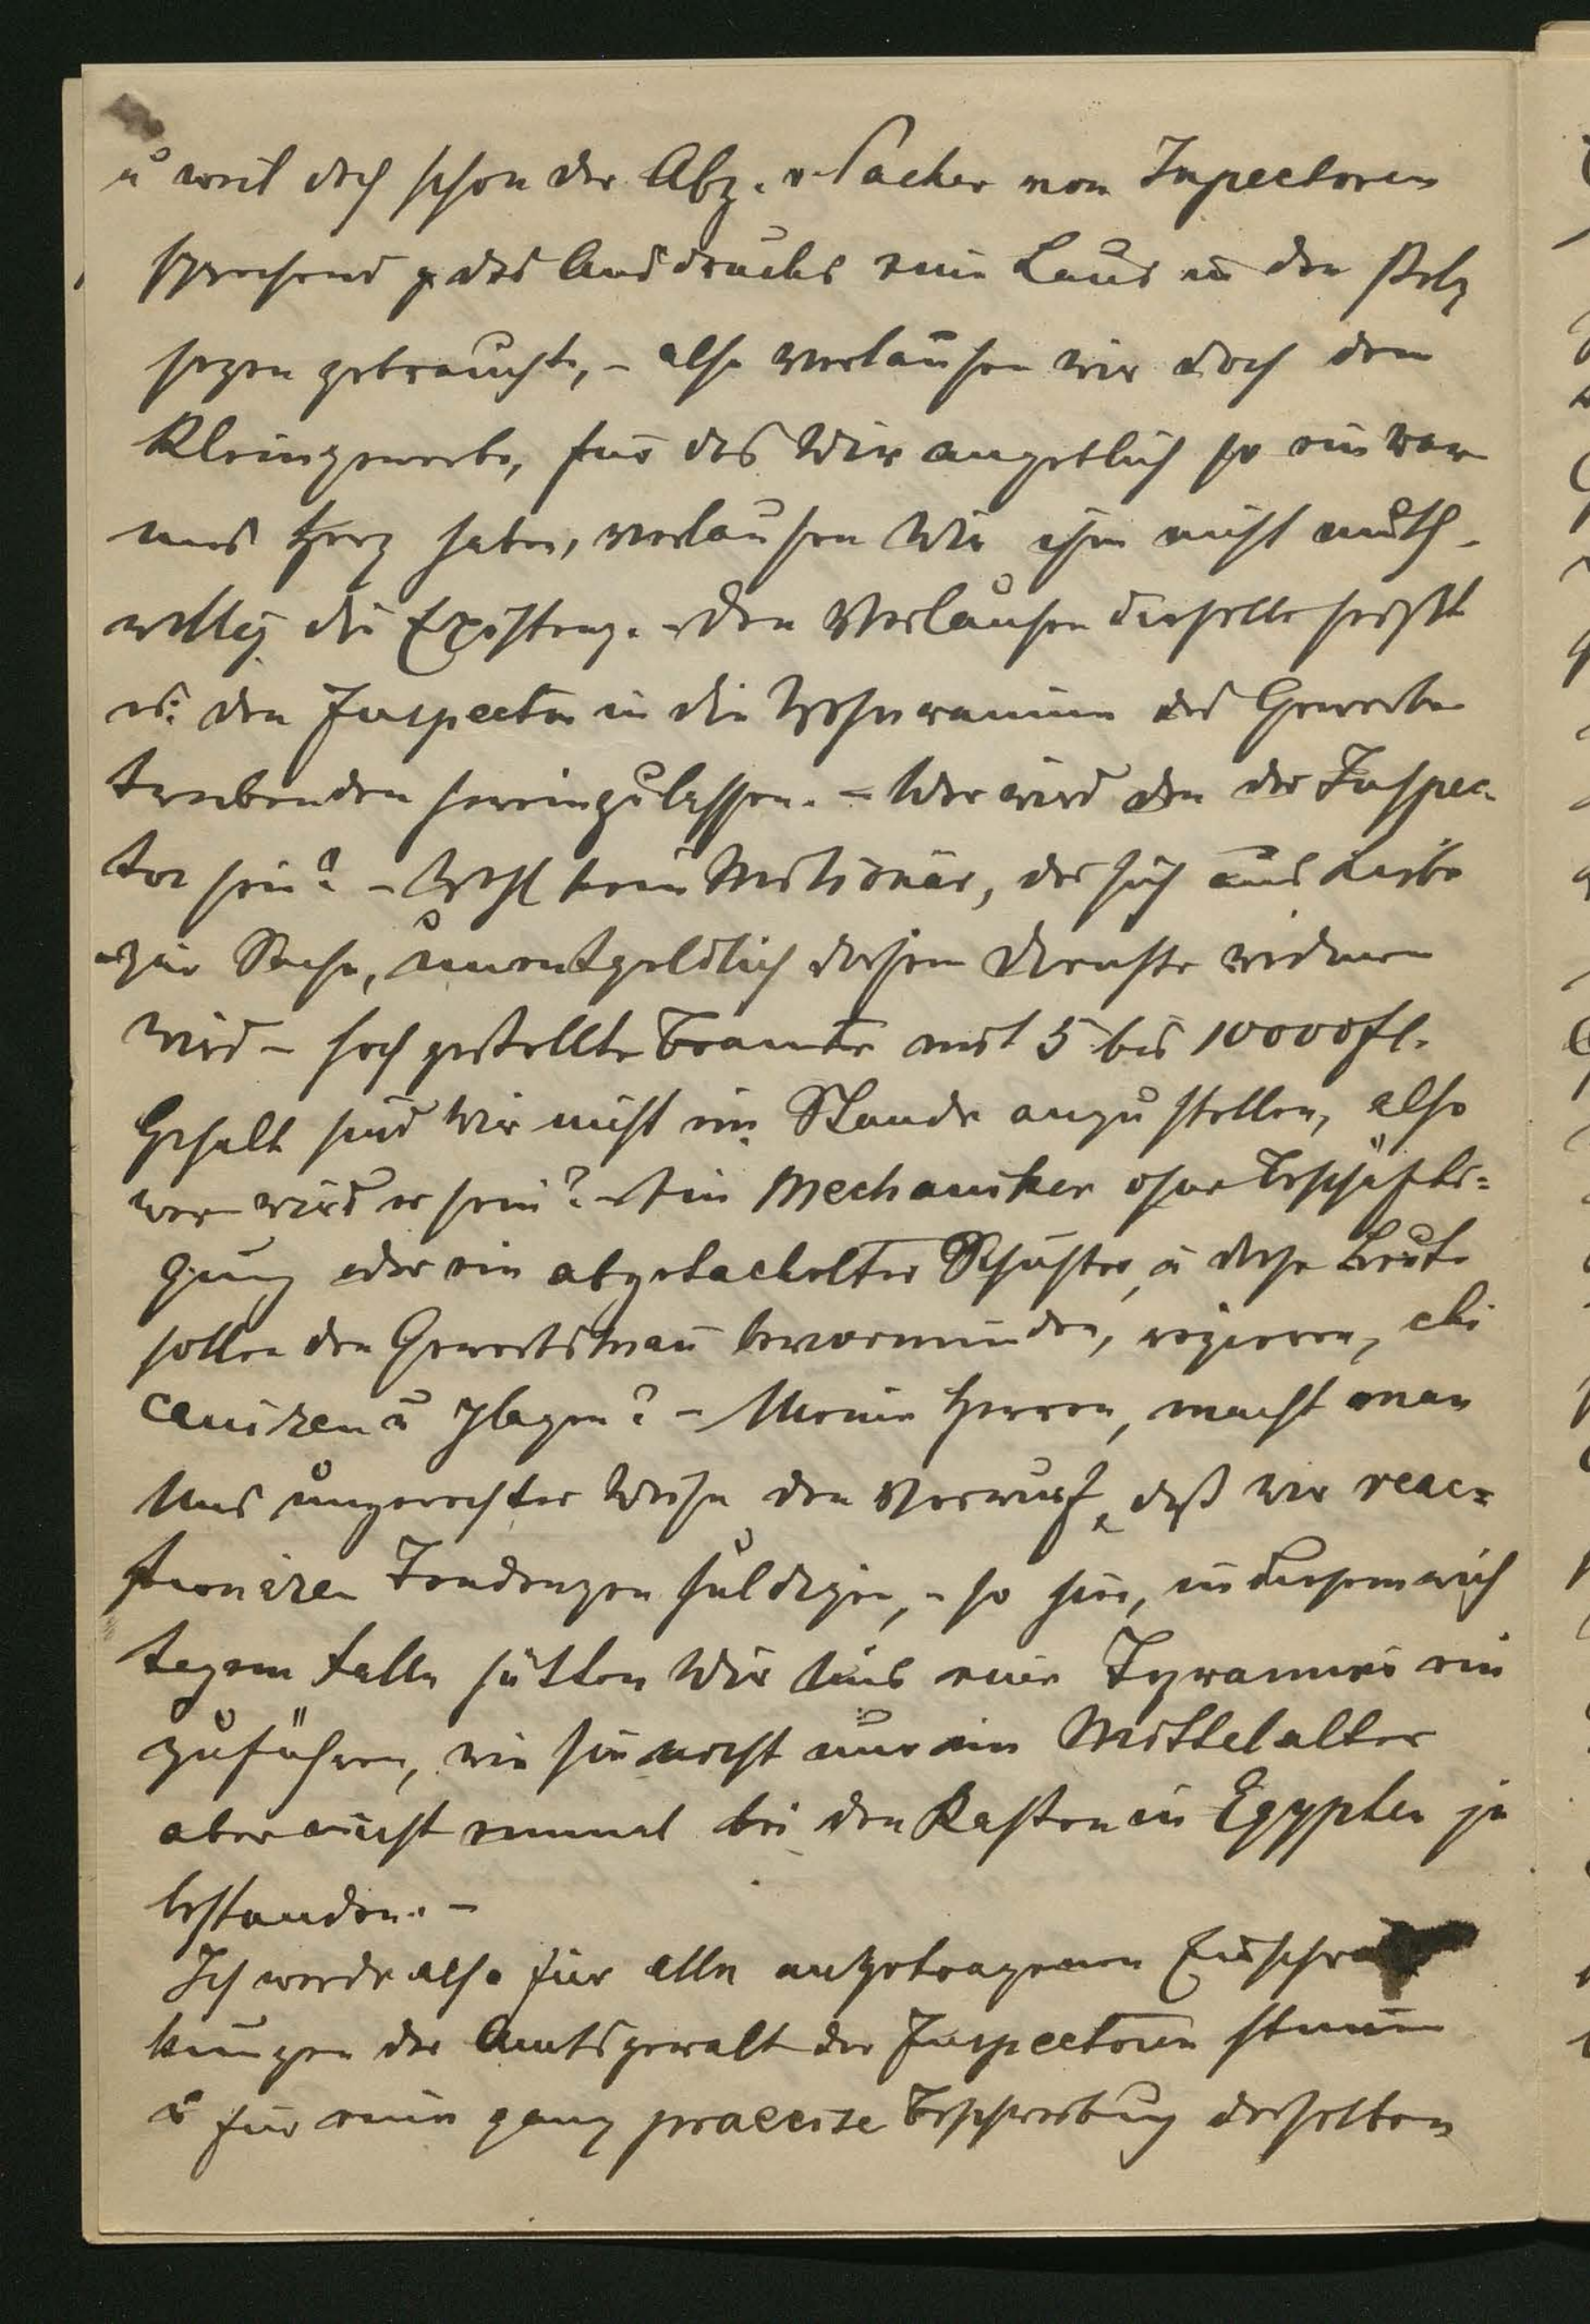 u weil doch schon der Abg. v Packer von Inspectoren
sprechend g des Ausdrucks eine Laus in den Pelz
sezen gebrauchte, – also verlausen wir doch dem
Kleingewerbe, für das Wir angeblich so ein war
mes Herz haben, verlausen Wir ihm nicht muth-
willig die Existenz. – Den Verlausen dieselbe heißt
es: den Inspector in die Wohnräume des Gewerbe
treibenden hereinzulassen. – Wer wird den der Inspec-
tor sein? – Wohl kein Millionär, der sich aus Liebe
zur Sache, unentgeldlich diesem Dienste widmen
wird – hoch gestellte Beamte mit 5 bis 10000 fl.
Gehalt sind Wir nicht im Stande anzustellen, also
wer wird es sein? – Ein Mechaniker ohne Beschäfti=
gung oder ein abgetackelter Schuster, u diese Leute
sollen den Gewerbsman bevormunden, regieren, chi
caniren u plagen? – Meine Herren, macht man
Uns ungerechter Weise den Vorwurf, daß wir reac=
tionären Tendenzen huldigen, – so hier, in diesem wich
tigem Falle hätten Wir Uns eine Tyrannei ein
zuführen, wie sie nicht nur im Mittelalter
aber nicht einmal bei den Kasten in Egypten je
bestanden. –
Ich werde also für alle angetragenen Einschrän
kungen der Amtsgewalt der Inspectoren stimen
u für eine ganz praecise Beschreibung derselben